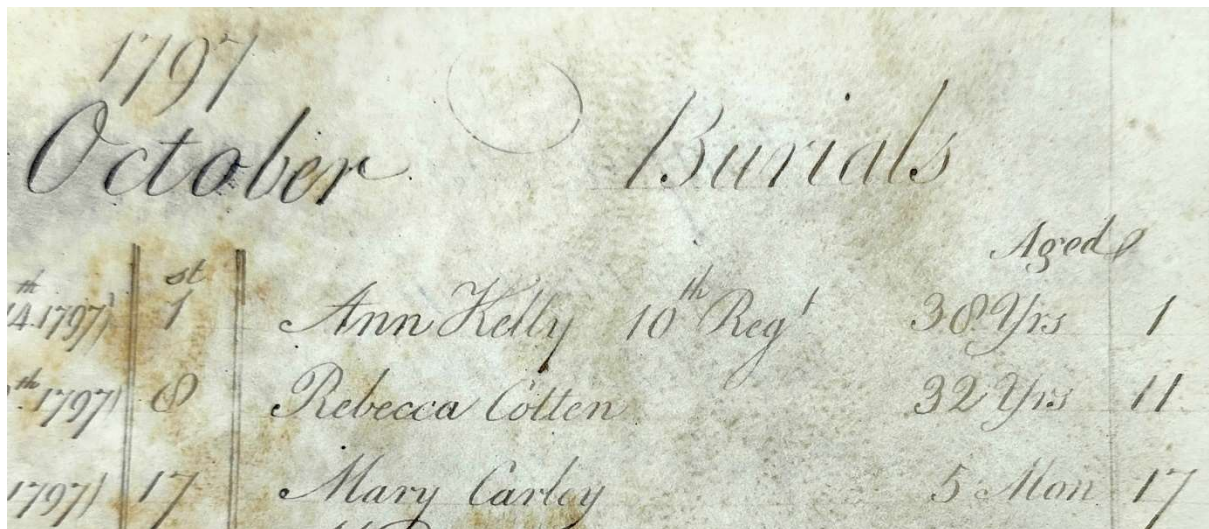 1797
October Burials
Aged
14th 1797 1st Ann Kelly 10th Regt 38 Yrs 1
th 1797 8 Rebecca Cotten 32 Yrs 11
1797 17 Mary Carley 5 Mon 17